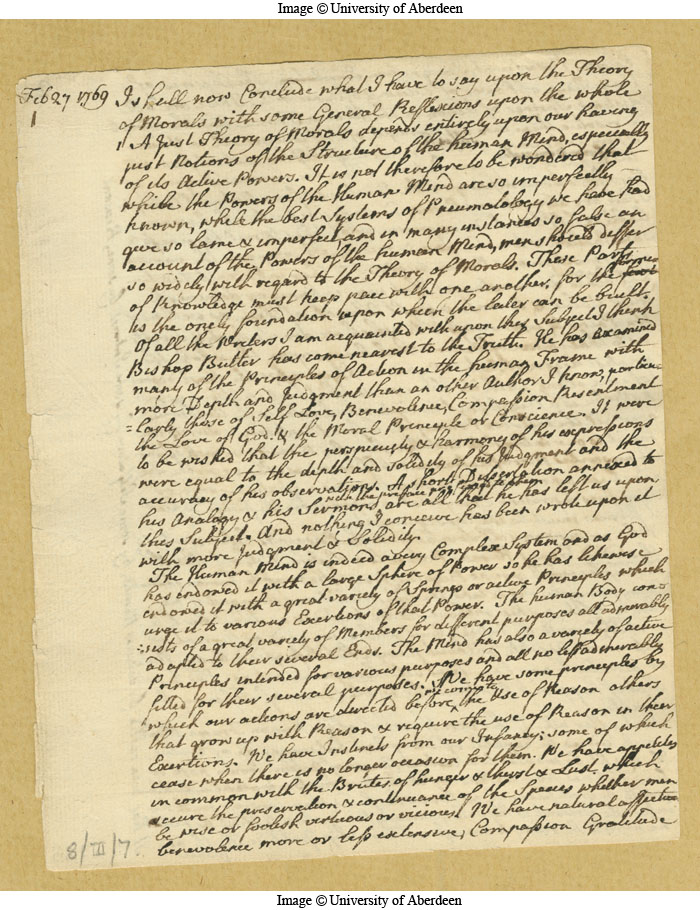 Image © University of Aberdeen
Feb 27 1769
1
I shall now Conclude what I have to say upon the Theory
of Morals with some General Reflexions upon the whole
1 A Just Theory of Morals depends entirely upon our having
just Notions of the Structure of the human Mind, especially
of its Active Powers. It is not therefore to be wondered that
while the Powers of the Human Mind are so imperfectly
known, while the best Systems of Pneumatology we have had
give so lame & imperfect, and in many instances so false an
account of the Powers of the human Mind, men should differ
so widely with regard to the Theory of Morals. These Parts
of Knowledge must keep pace with one another, for the former
is the onely foundation upon which the later can be built.
Of all the Writers I am acquainted with upon this Subject I think
Bishop Butler has come nearest to the Truth. He has examined
many of the Principles of Action in the human Frame with
more Depth and Judgment than an other Author I know, particu
=larly those of Self Love, Benevolence, Compassion Resentment
the Love of God. & the Moral Principle or Conscience. It were
to be wished that the perspicuity & harmony of his expressions
were equal to the depth and solidity of his Judgment and the
accuracy of his observations. A short Dissertation annexed to
his Analogy & his Sermons with the preface are all that he has left us upon
this Subject. And nothing I conceive has been wrote upon it
with more Judgment & Solidity.
The Human Mind is indeed a very Complex System and as God
has endowed it with a large Sphere of Power so he has likewise
endowed it with a great variety of Springs or active Principles which
urge it to various Exertions of that Power. The human Body con
:sists of a great variety of Members for different purposes all admirably
adapted to their several Ends. The Mind has also a variety of active
Principles intended for various purposes and all no less admirably
fitted for their several purposes. We have some principles by
which our actions are directed before we come to the Use of Reason others
that grow up with Reason & require the use of Reason in their
Exertions. We have Instincts from our Infancy; some of which
cease when there is no longer occasion for them. We have appetites
in common with the Brutes of hunger & thirst & Lust which
secure the preservation & continuance of the Species whether men
be wise or foolish virtuous or vicious. We have natural affection
benevolence more or less extensive, Compassion Gratitude
8/III/7
Image © University of Aberdeen